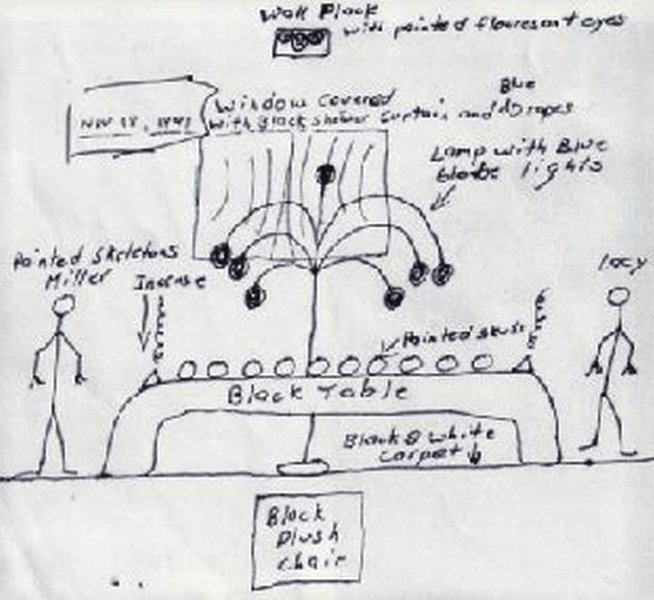 Wall Plack
with painted fluoresant eyes
Blue
Window Covered
with black shower curtain and drapes
Lamp with Blue
Globe lights
Painted Skeletons
Miller
Incense
Lacy
Painted skulls
Black Table
Black & white
carpet
Black
Plush
chair